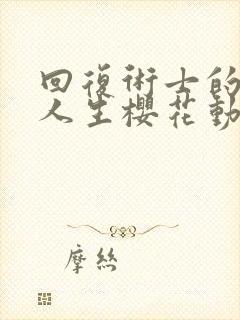 回復術士的
人生櫻花動
摩絲